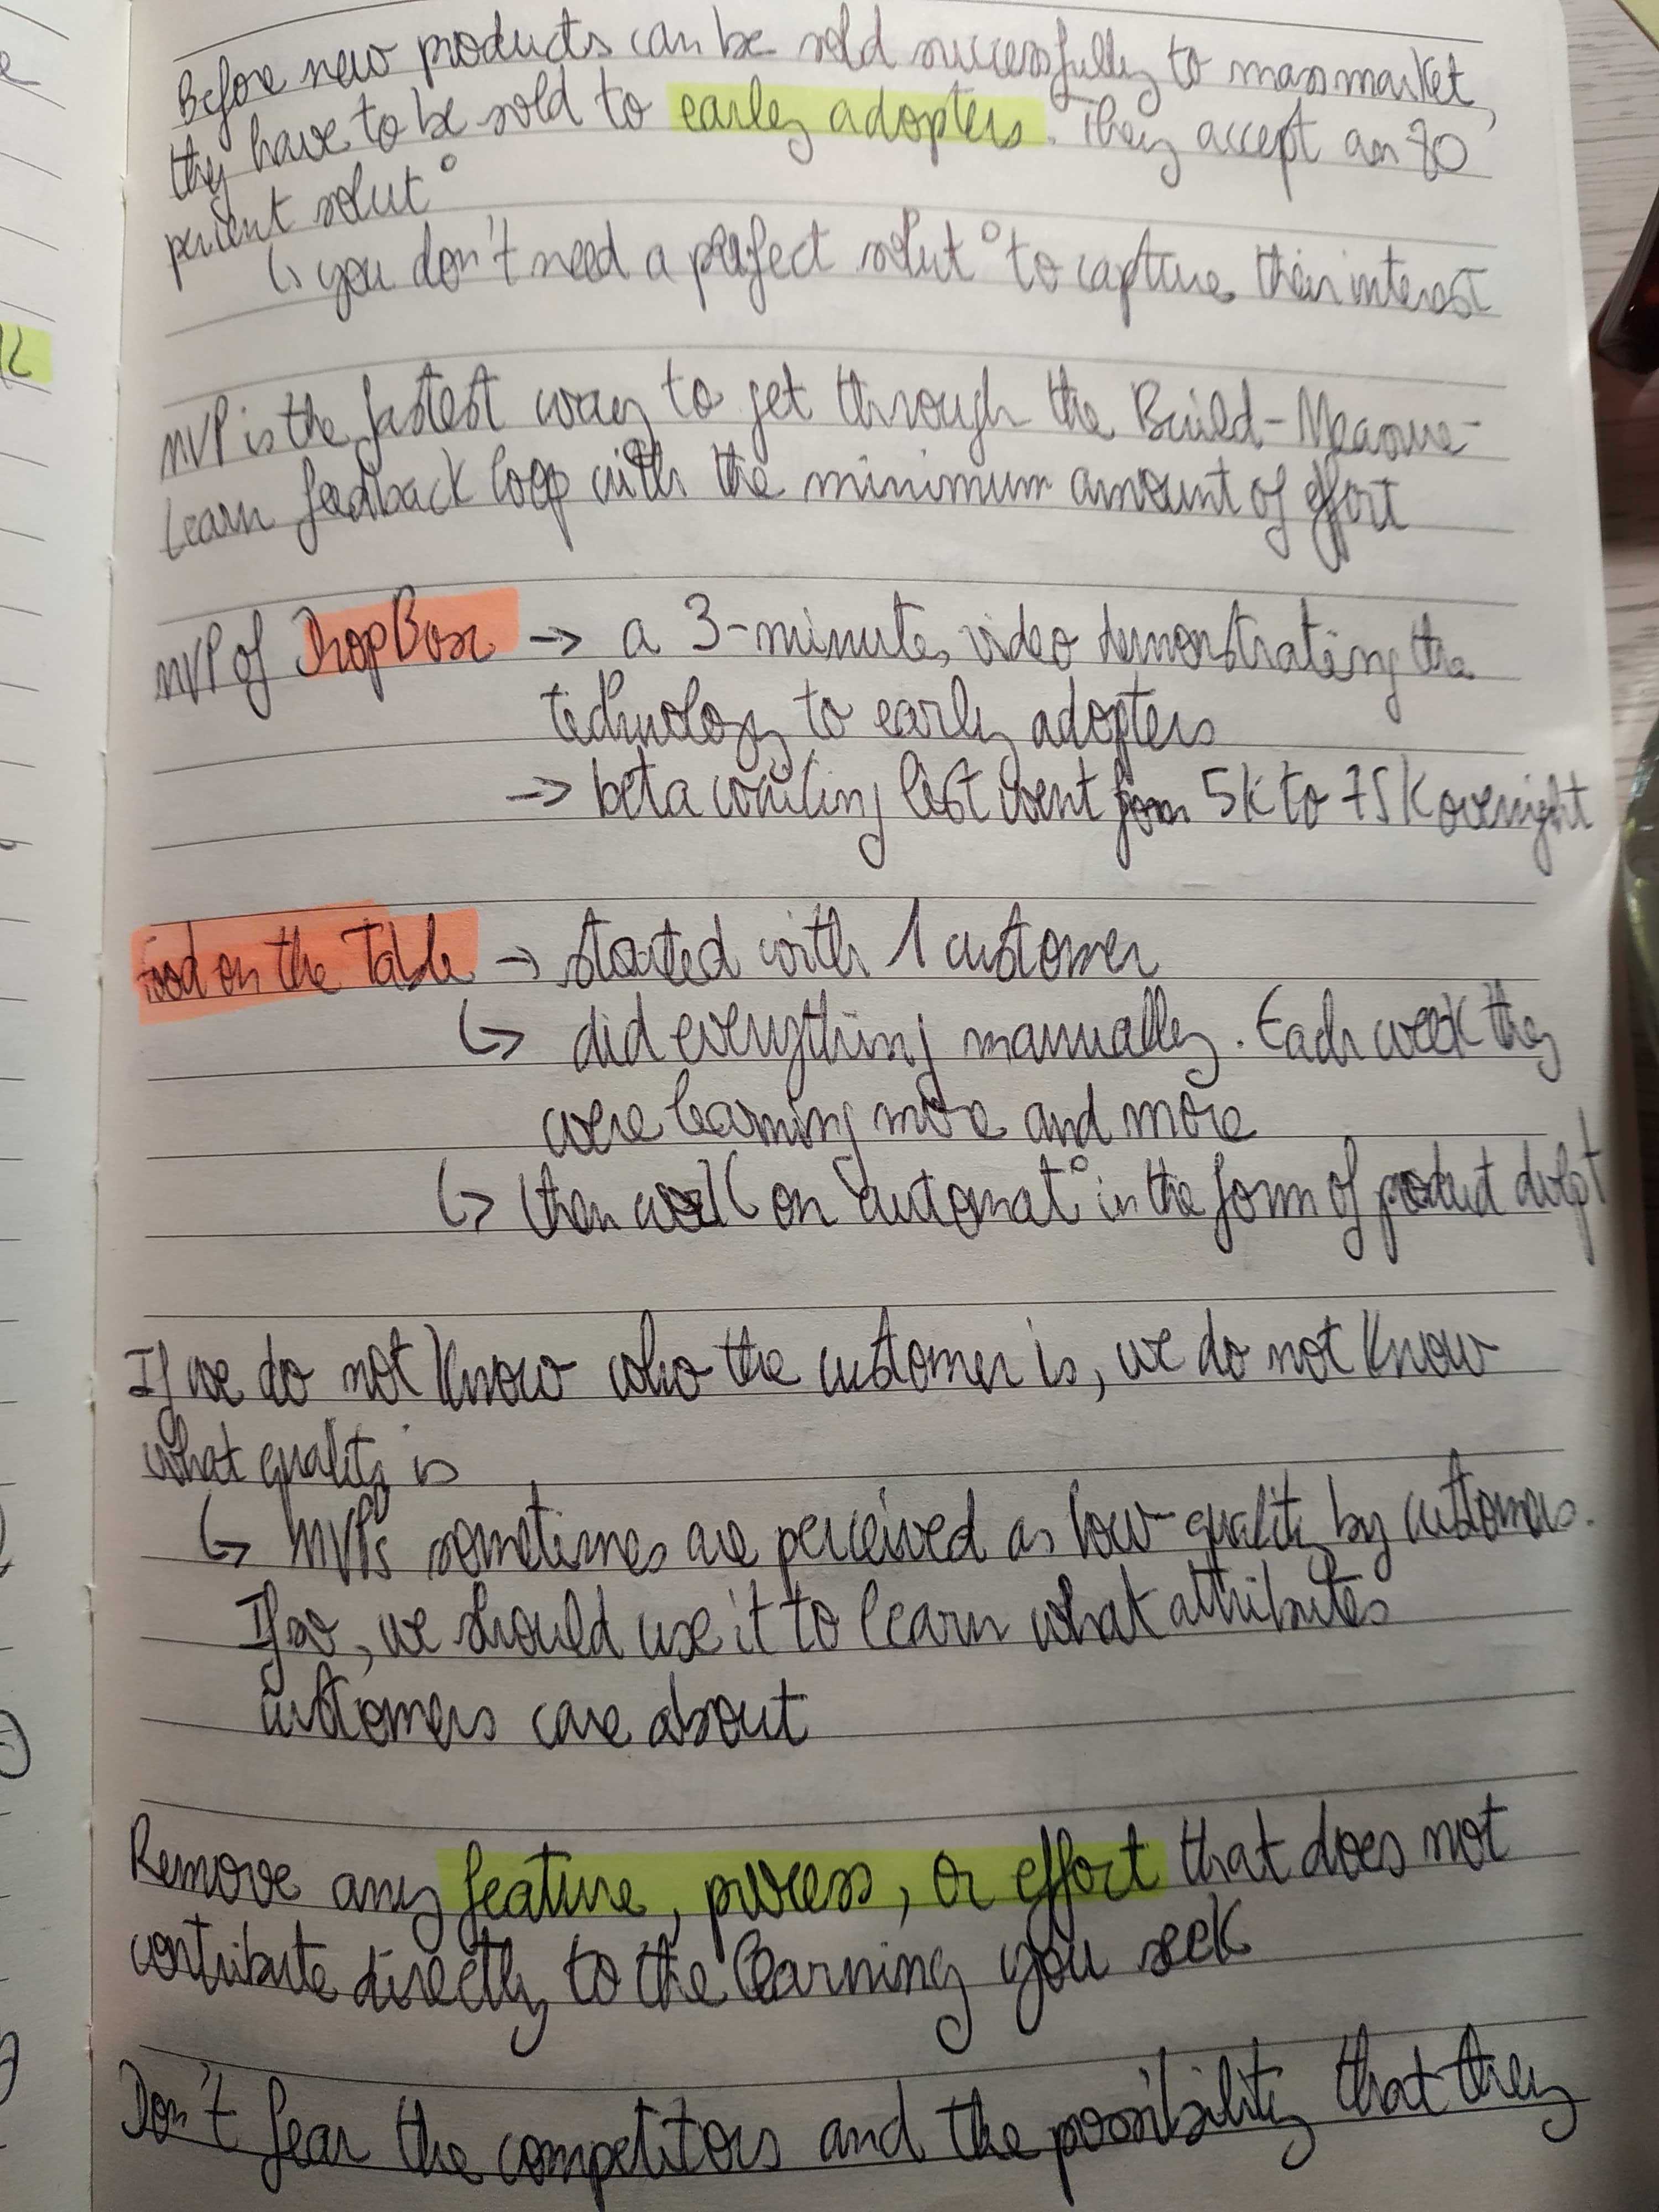 Before new products can be sold successfully to mass market,
they have to be sold to early adopters. They accept an 80
percent solut°
↳ you don't need a perfect solut° to capture their interest
MVP is the fastest way to get through the Build-Measure-
Learn feedback loop with the minimum amount of effort
MVP of DropBox → a 3-minute video demonstrating the
technology to early adopters
→ beta waiting list went from 5k to 75k overnight
Food on the Table → started with 1 customer
↳ did everything manually. Each week they
were learning more and more
↳ then work on automat° in the form of product dvlpt
If we do not know who the customer is, we do not know
what quality is
↳ MVPs sometimes are perceived as low-quality by customers.
If so, we should use it to learn what attributes
customers care about
Remove any feature, process, or effort that does not
contribute directly to the learning you seek
Don't fear the competitors and the possibility that they